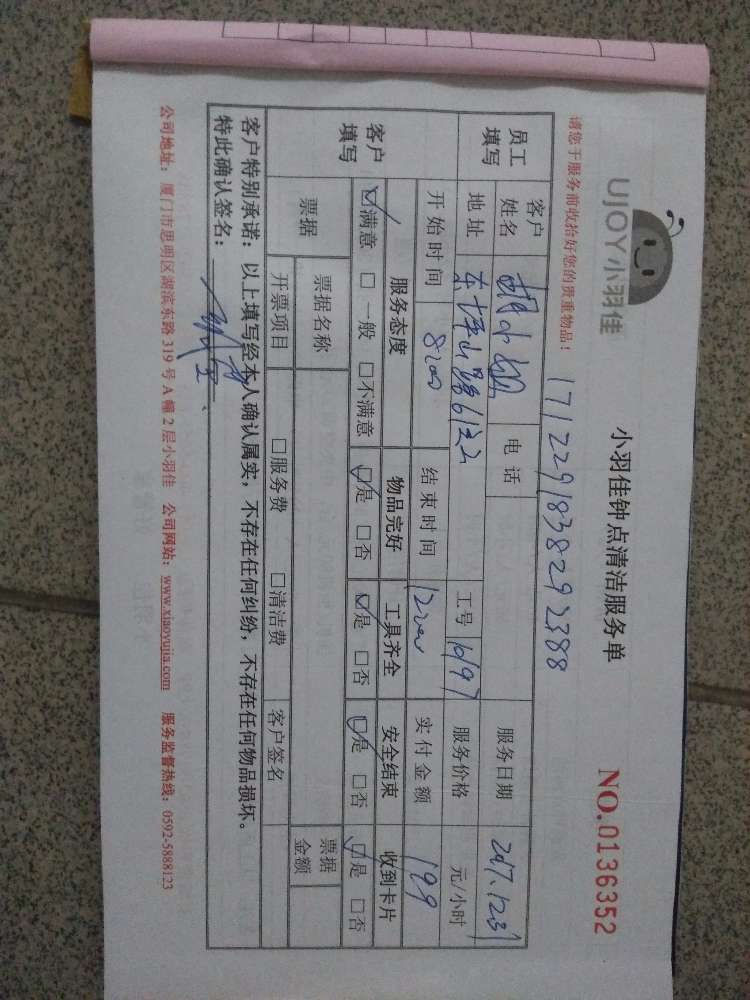 UJOY小羽佳
小羽佳钟点清洁服务单
NO.0136352
请您于服务前收拾好您的贵重物品！
1712291838292388
员工填写 客户姓名 电话 服务日期 2017.12.31
地址 东坪山路6122 工号 10197 服务价格 元/小时
开始时间 8:00 结束时间 12:00 实付金额 199
客户填写 服务态度 物品完好 工具齐全 安全结束 收到卡片
☑满意 □一般 □不满意 ☑是 □否 ☑是 □否 ☑是 □否 ☑是 □否
票据 票据名称 票据金额
开票项目 □服务费 □清洁费 客户签名
客户特别承诺：以上填写经本人确认属实，不存在任何纠纷，不存在任何物品损坏。
特此确认签名：
公司地址：厦门市思明区湖滨东路 319 号 A 幢 2 层小羽佳 公司网站：www.xiaoyujia.com 服务监督热线：0592-5888123